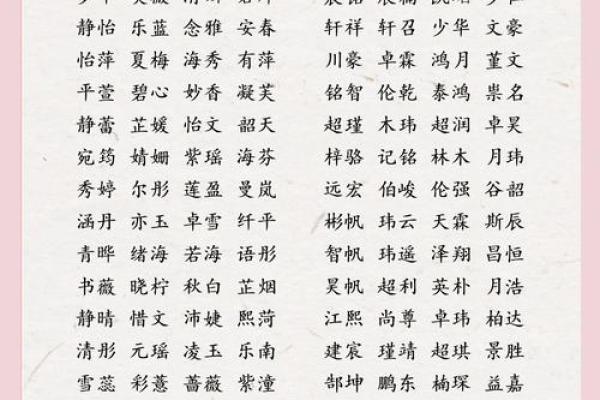 静怡 乐蓝 念雅 安春 轩祥 轩召 少华 文豪
怡萍 夏梅 海秀 有萍 川豪 卓霖 鸿月 董文
平萱 碧心 妙香 凝芙 铭智 伦乾 泰鸿 祟名
静蕾 芷媛 怡文 韶天 超瑾 木玮 超润 卓昊
宛筠 婧姗 紫瑶 海芬 梓骆 记铭 林木 月玮
秀婷 尔彤 莲盈 曼岚 远宏 伯峻 伦强 谷韶
涵丹 亦玉 卓雪 纤平 彬帆 玮云 天霖 斯辰
青晔 绪海 若海 语彤 智帆 玮遥 泽翔 昌恒
书薇 晓柠 秋白 芷烟 昊帆 超利 英朴 月浩
静晴 惜文 沛婕 熙菏 江熙 尚尊 卓玮 柏达
清彤 元瑶 凌玉 乐南 建宸 瑾靖 超琪 景胜
雪蕊 彩薏 蔷薇 紫潼 郜坤 鹏东 楠琛 益嘉